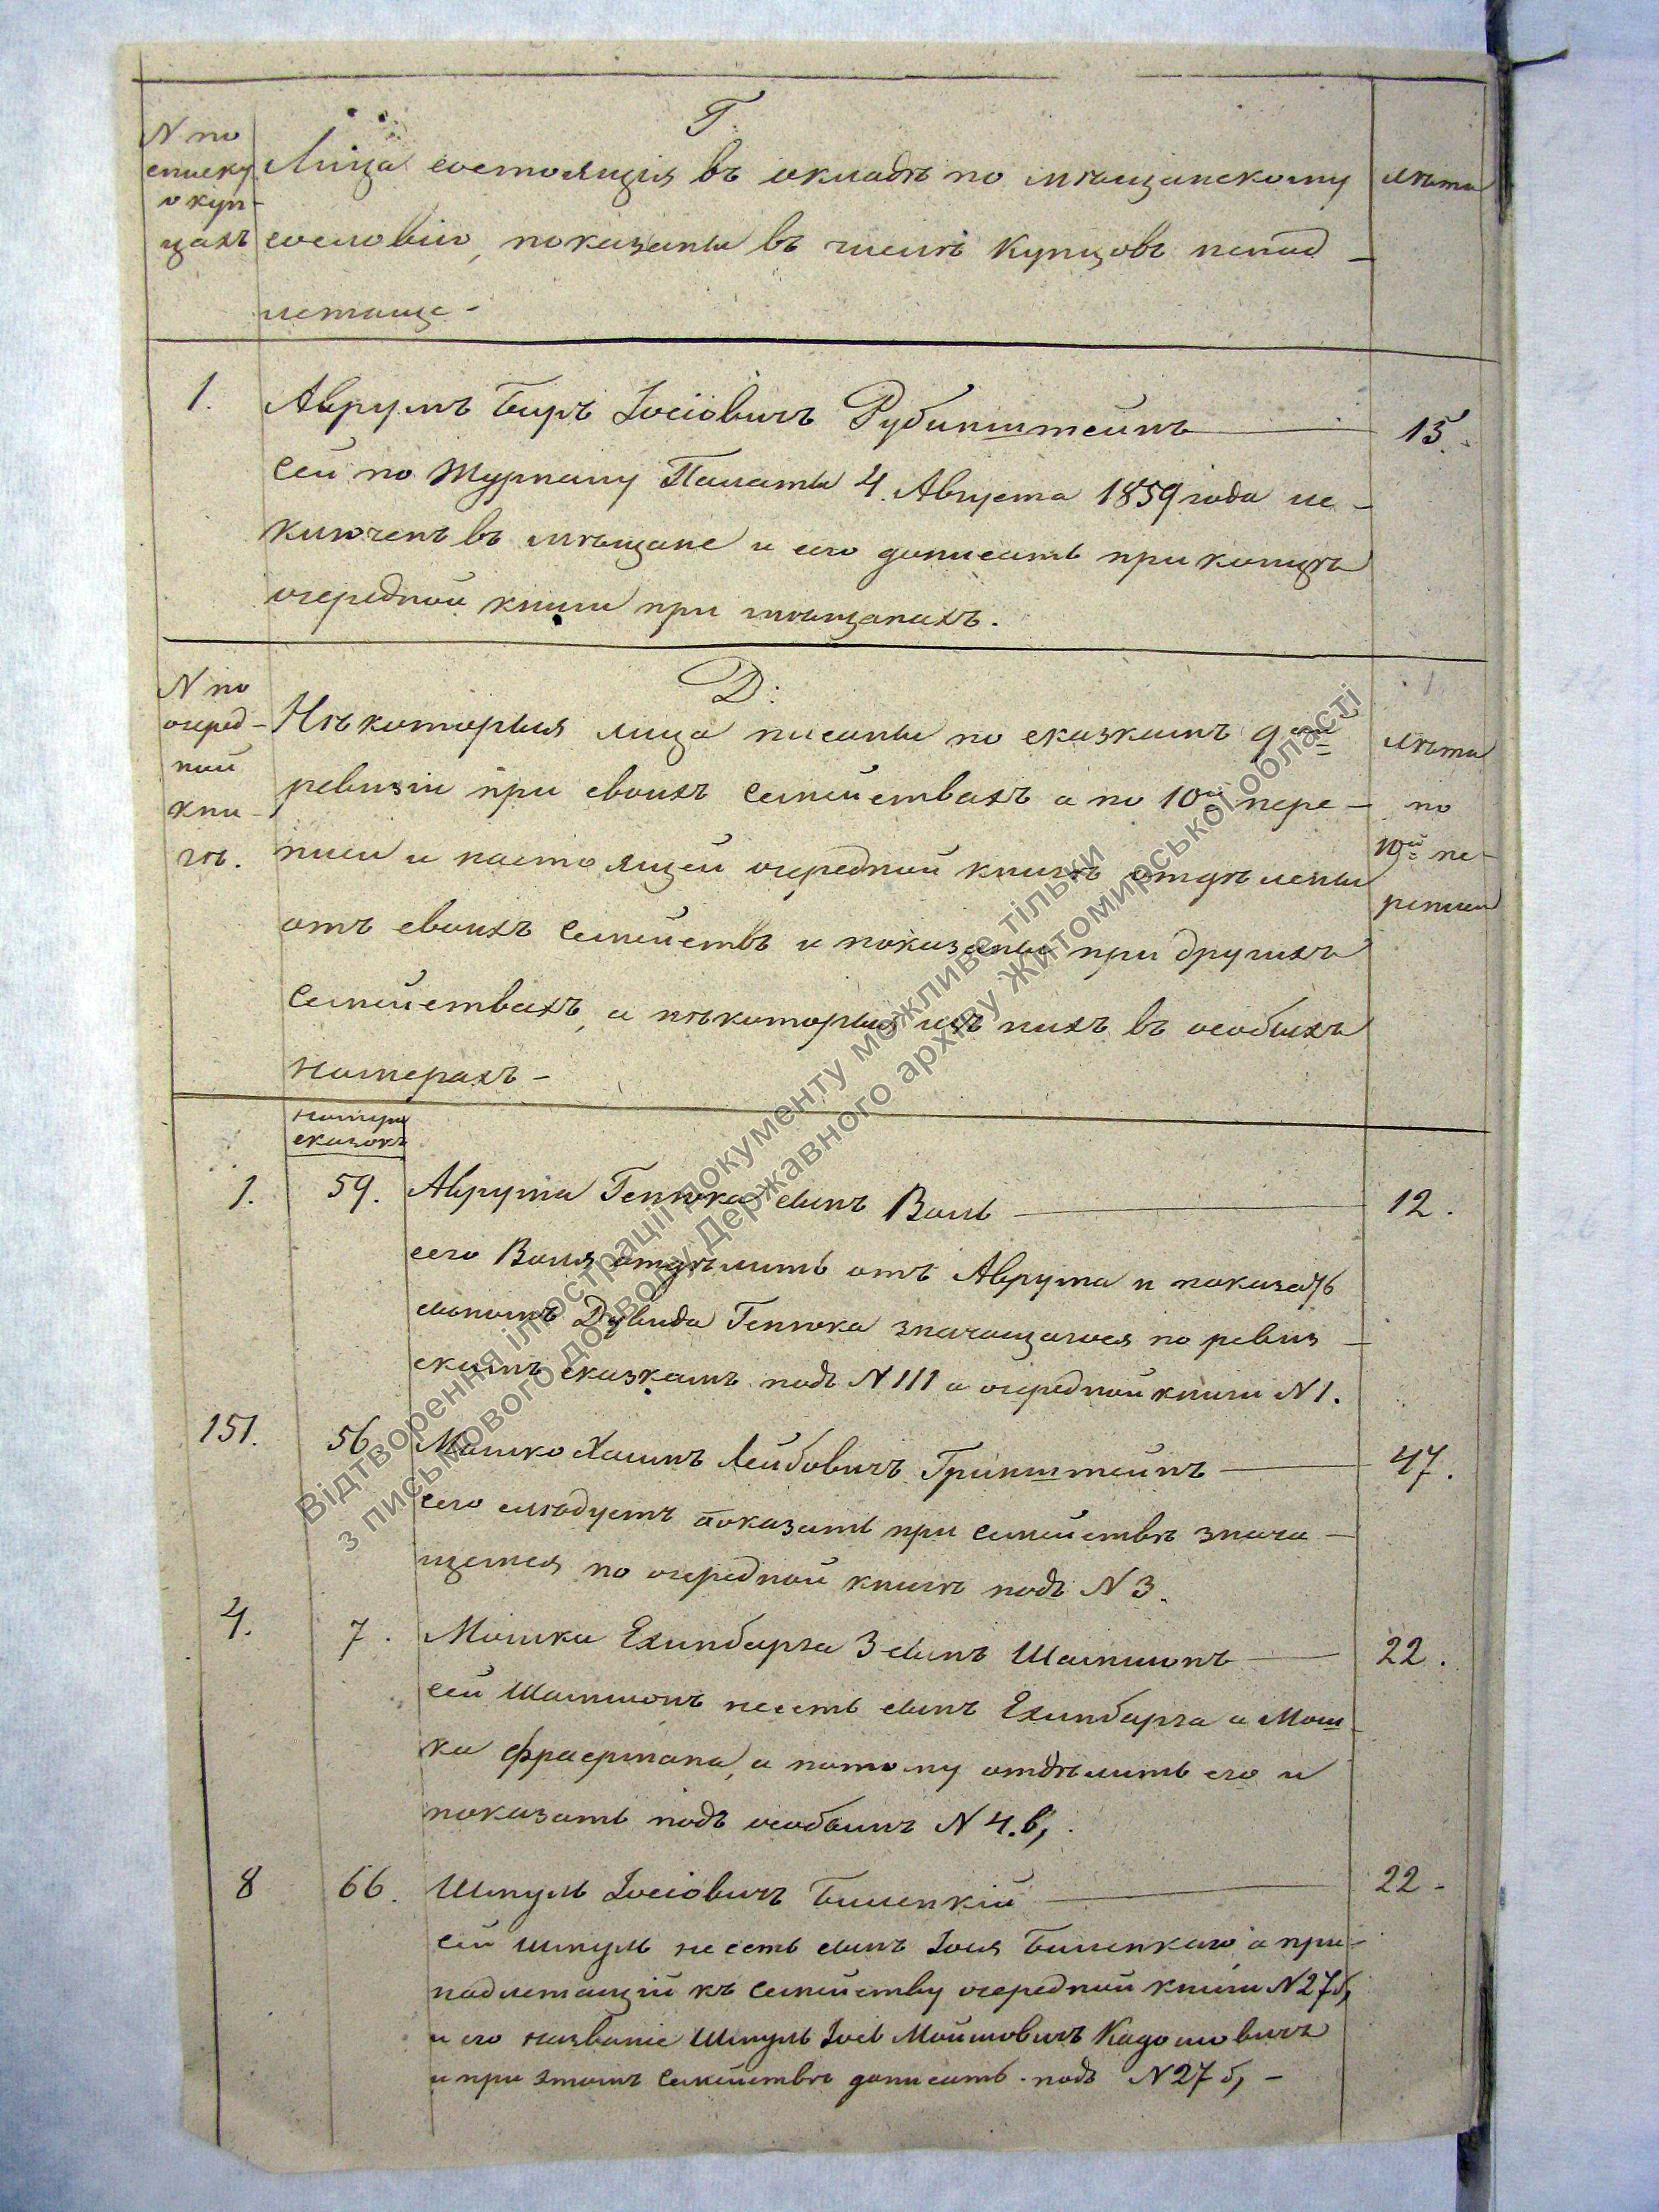 Г.
N по списку о купцахъ
Лица состоящія въ окладѣ по мѣщанскому
лѣта
сословію, показаны въ числѣ купцовъ ненад-
лежаще-
1. Аврумъ Беръ Іосіовичъ Рубинштейнъ 15.
сей по Журналу Палаты 4. Августа 1859 года ис-
ключенъ въ мѣщане и его дописать при концѣ
очередной книги при мѣщанахъ.
Д:
N по очеред-ной кни-гѣ.
Нѣкоторыя лица писаны по сказкамъ 9ой
ревизіи при своихъ семействахъ а по 10й пере-
писи и настоящей очередной книгѣ отдѣлены
отъ своихъ семействъ и показаны при другихъ
семействахъ, а нѣкоторыя изъ нихъ въ особыхъ
номерахъ-
лѣта
по
10й пе-
реписи
номера
сказокъ
1. 59. Аврума Генюка сынъ Воль 12.
сего Воля отдѣлить отъ Аврума и показать
сыномъ Дувида Генюка значащагося по ревиз-
скимъ сказкамъ подъ N 111 а очередной книги N 1.
151. 56. Мошко Хаимъ Лейбовичъ Гринштейнъ 47.
сего слѣдуетъ показать при семействѣ знача-
щемся по очередной книгѣ подъ N 3.
4. 7. Мошки Ехинбарга 3 сынъ Шлемионъ 22.
сей несть сынъ Ехинбарга а Мош-
ка Фраермана, а потому отдѣлить его и
показать подъ особымъ N 4. в,
8 66. Шмуль Іосіовичъ Биленкій 22-
сей Шмуль несть сынъ Іося Биленкаго а при-
надлежащій къ семейству очередной книги N 27 б,
и его названіе Шмуль Іось Мошковичъ
и при этомъ семействѣ дописать подъ N 27 б,-
Відтворення ілюстрації документу можливе тільки
з письмового дозволу Державного архіву Житомирської області